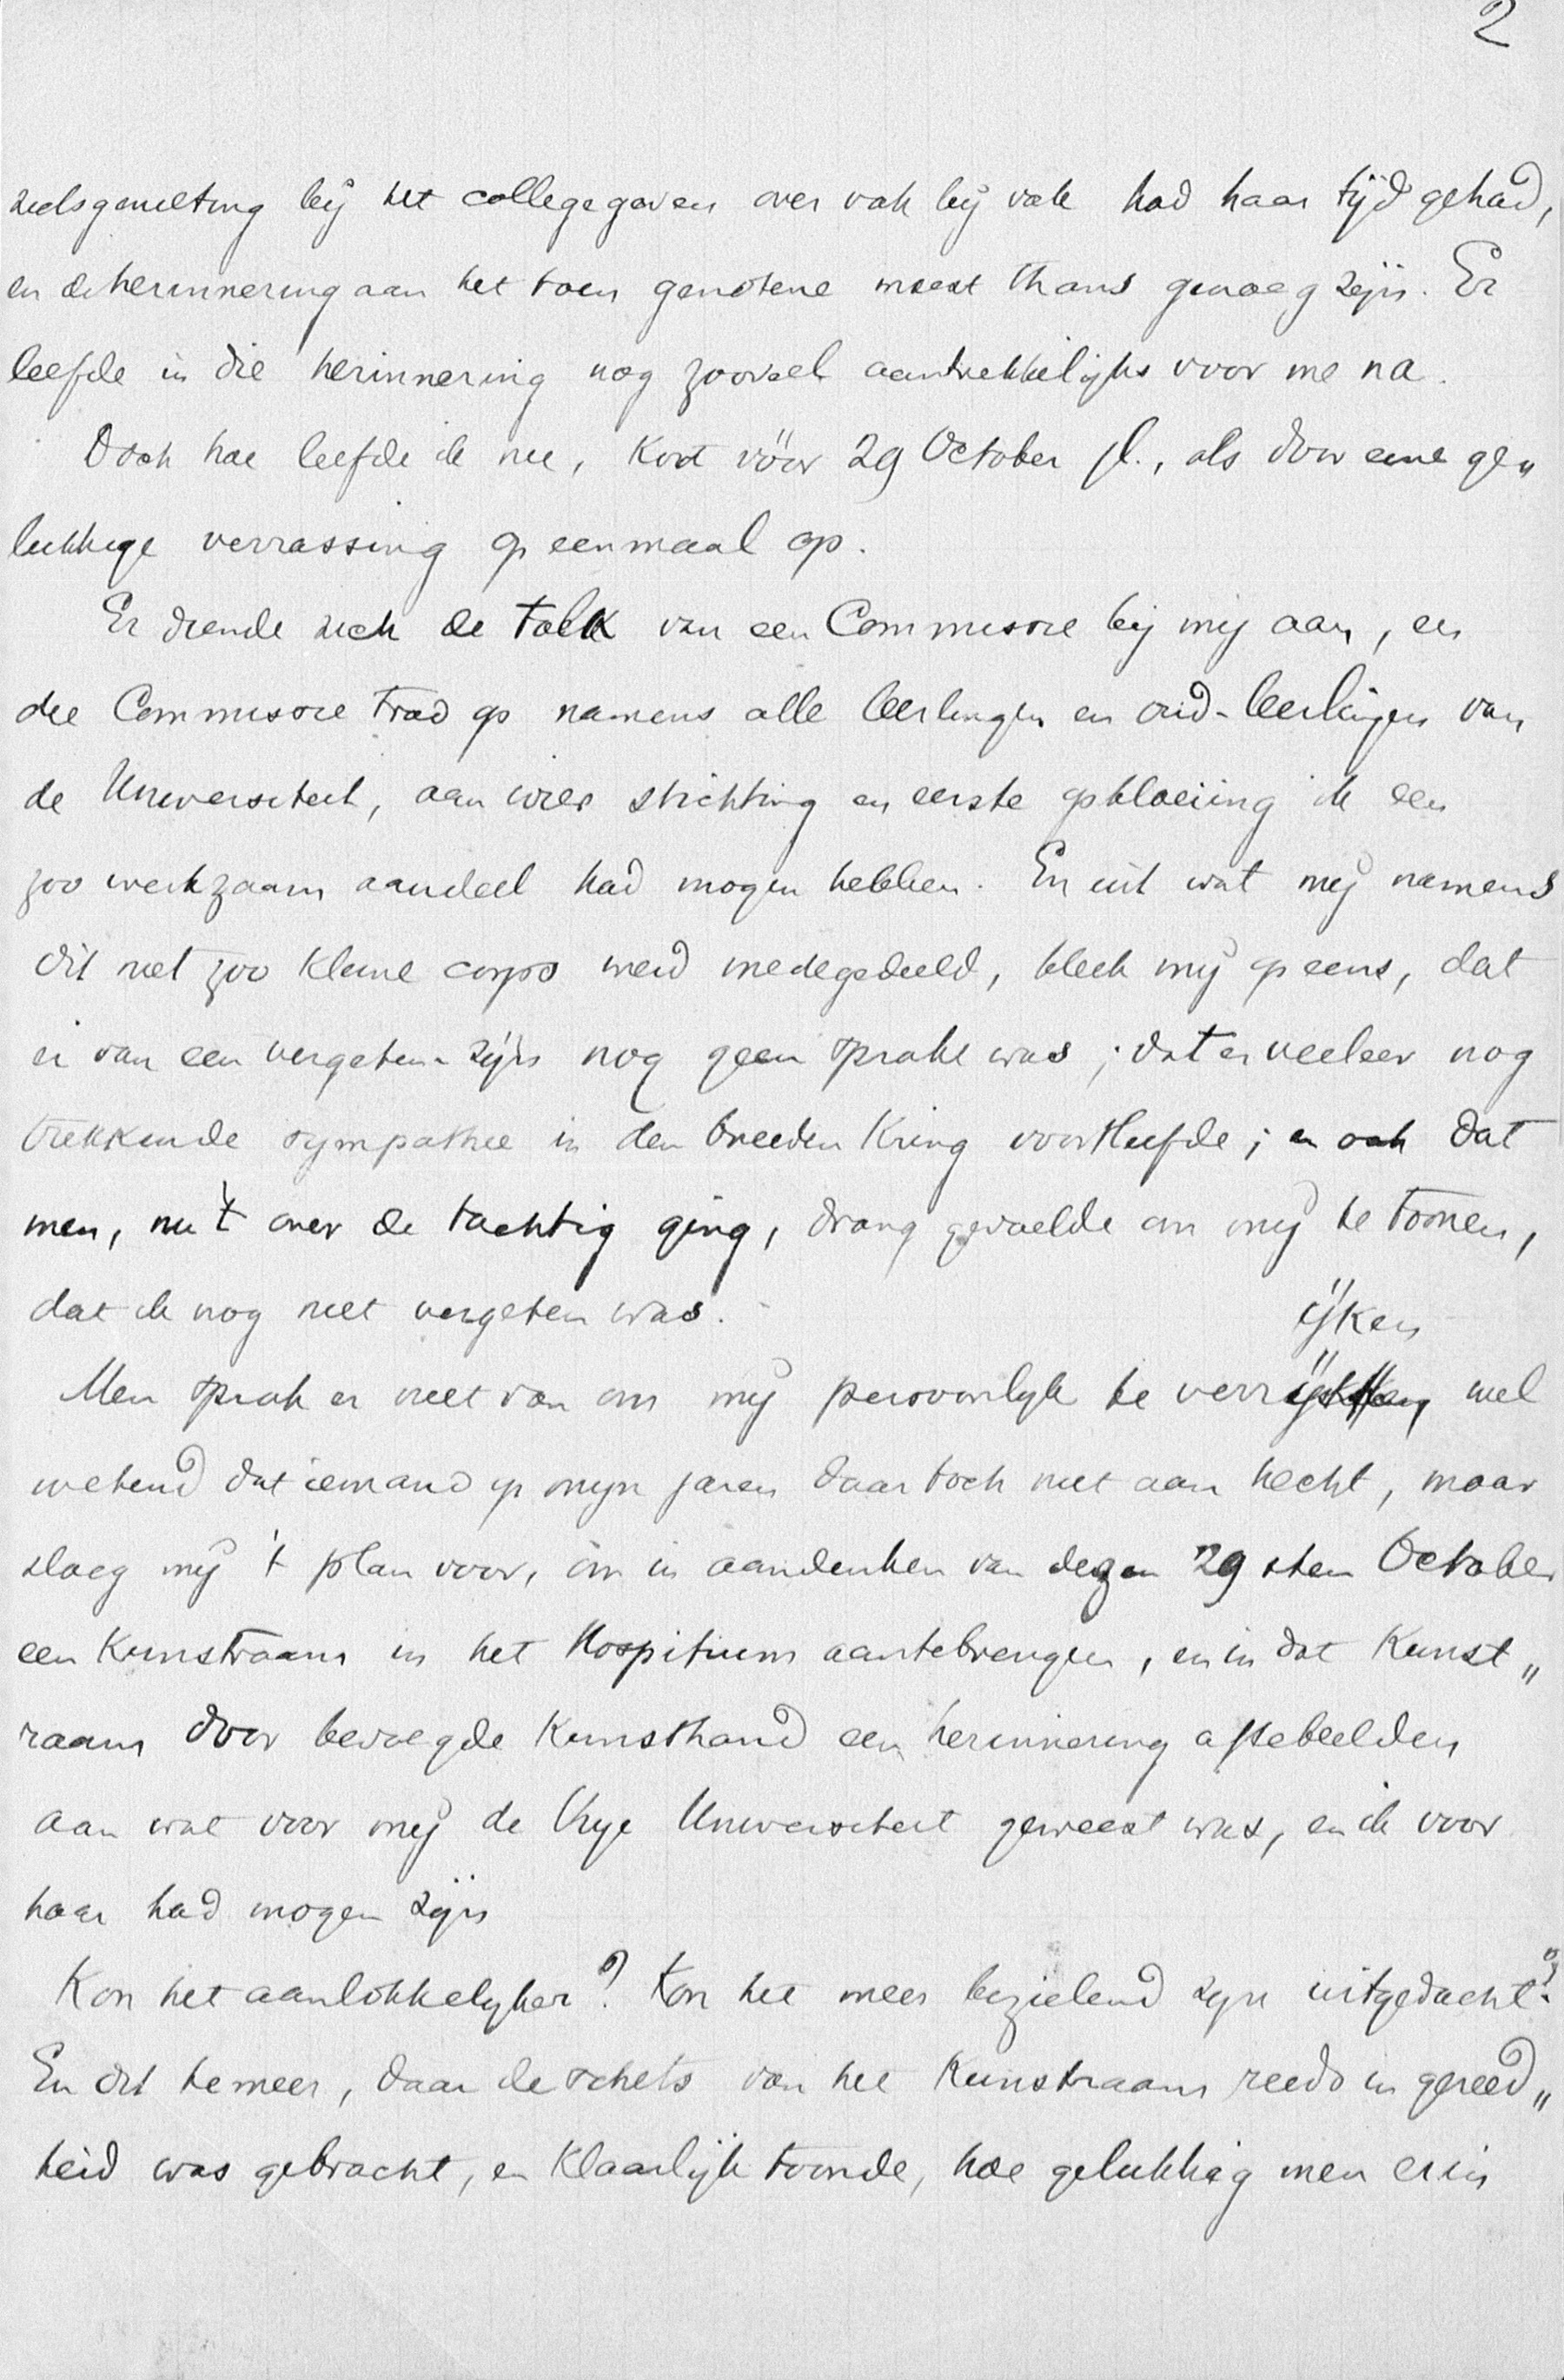 2
zielsgenieting bij het collegegeven over vak bij vak had haar tijd gehad,
en de herinnering aan het toen genotene moest thans genoeg zijn. Er
leefde in die herinnering nog zooveel aantrekkelijks voor me na.
Doch hoe leefde ik nu, kort vóór 29 October jl., als door eene ge„
lukkige verrassing op eenmaal op.
Er diende zich de tolk van een Commissie bij mij aan, en
die Commissie trad op namens alle leerlingen en oud-leerlingen van
de Universiteit, aan wier stichting en eerste opbloeiing ik een
zoo werkzaam aandeel had mogen hebben. En uit wat mij namens
dit niet zoo kleine corps werd medegedeeld, bleek mij opeens, dat
er van een vergeten-zijn nog geen sprake was; dat er veeleer nog
trekkende sympathie in den breeden kring voortleefde; en ook dat
men, nu 't over de tachtig ging, drang gevoelde om mij te toonen,
dat ik nog niet vergeten was.
ijken
Men sprak er niet van om mij persoonlijk te verr wel
wetend dat iemand op mijn jaren daar toch niet aan hecht, maar
sloeg mij 't plan voor, om in aandenken van dezen 29sten October
een Kunstraam in het Hospitium aantebrengen, en in dat Kunst„
raam door bevoegde Kunsthand een herinnering aftebeelden
aan wat voor mij de Vrije Universiteit geweest was, en ik voor
haar had mogen zijn
Kon het aanlokkelijker? Kon het meer bezielend zijn uitgedacht?
En dit te meer, daar de schets van het Kunstraam reeds in gereed„
heid was gebracht, en klaarlijk toonde, hoe gelukkig men erin